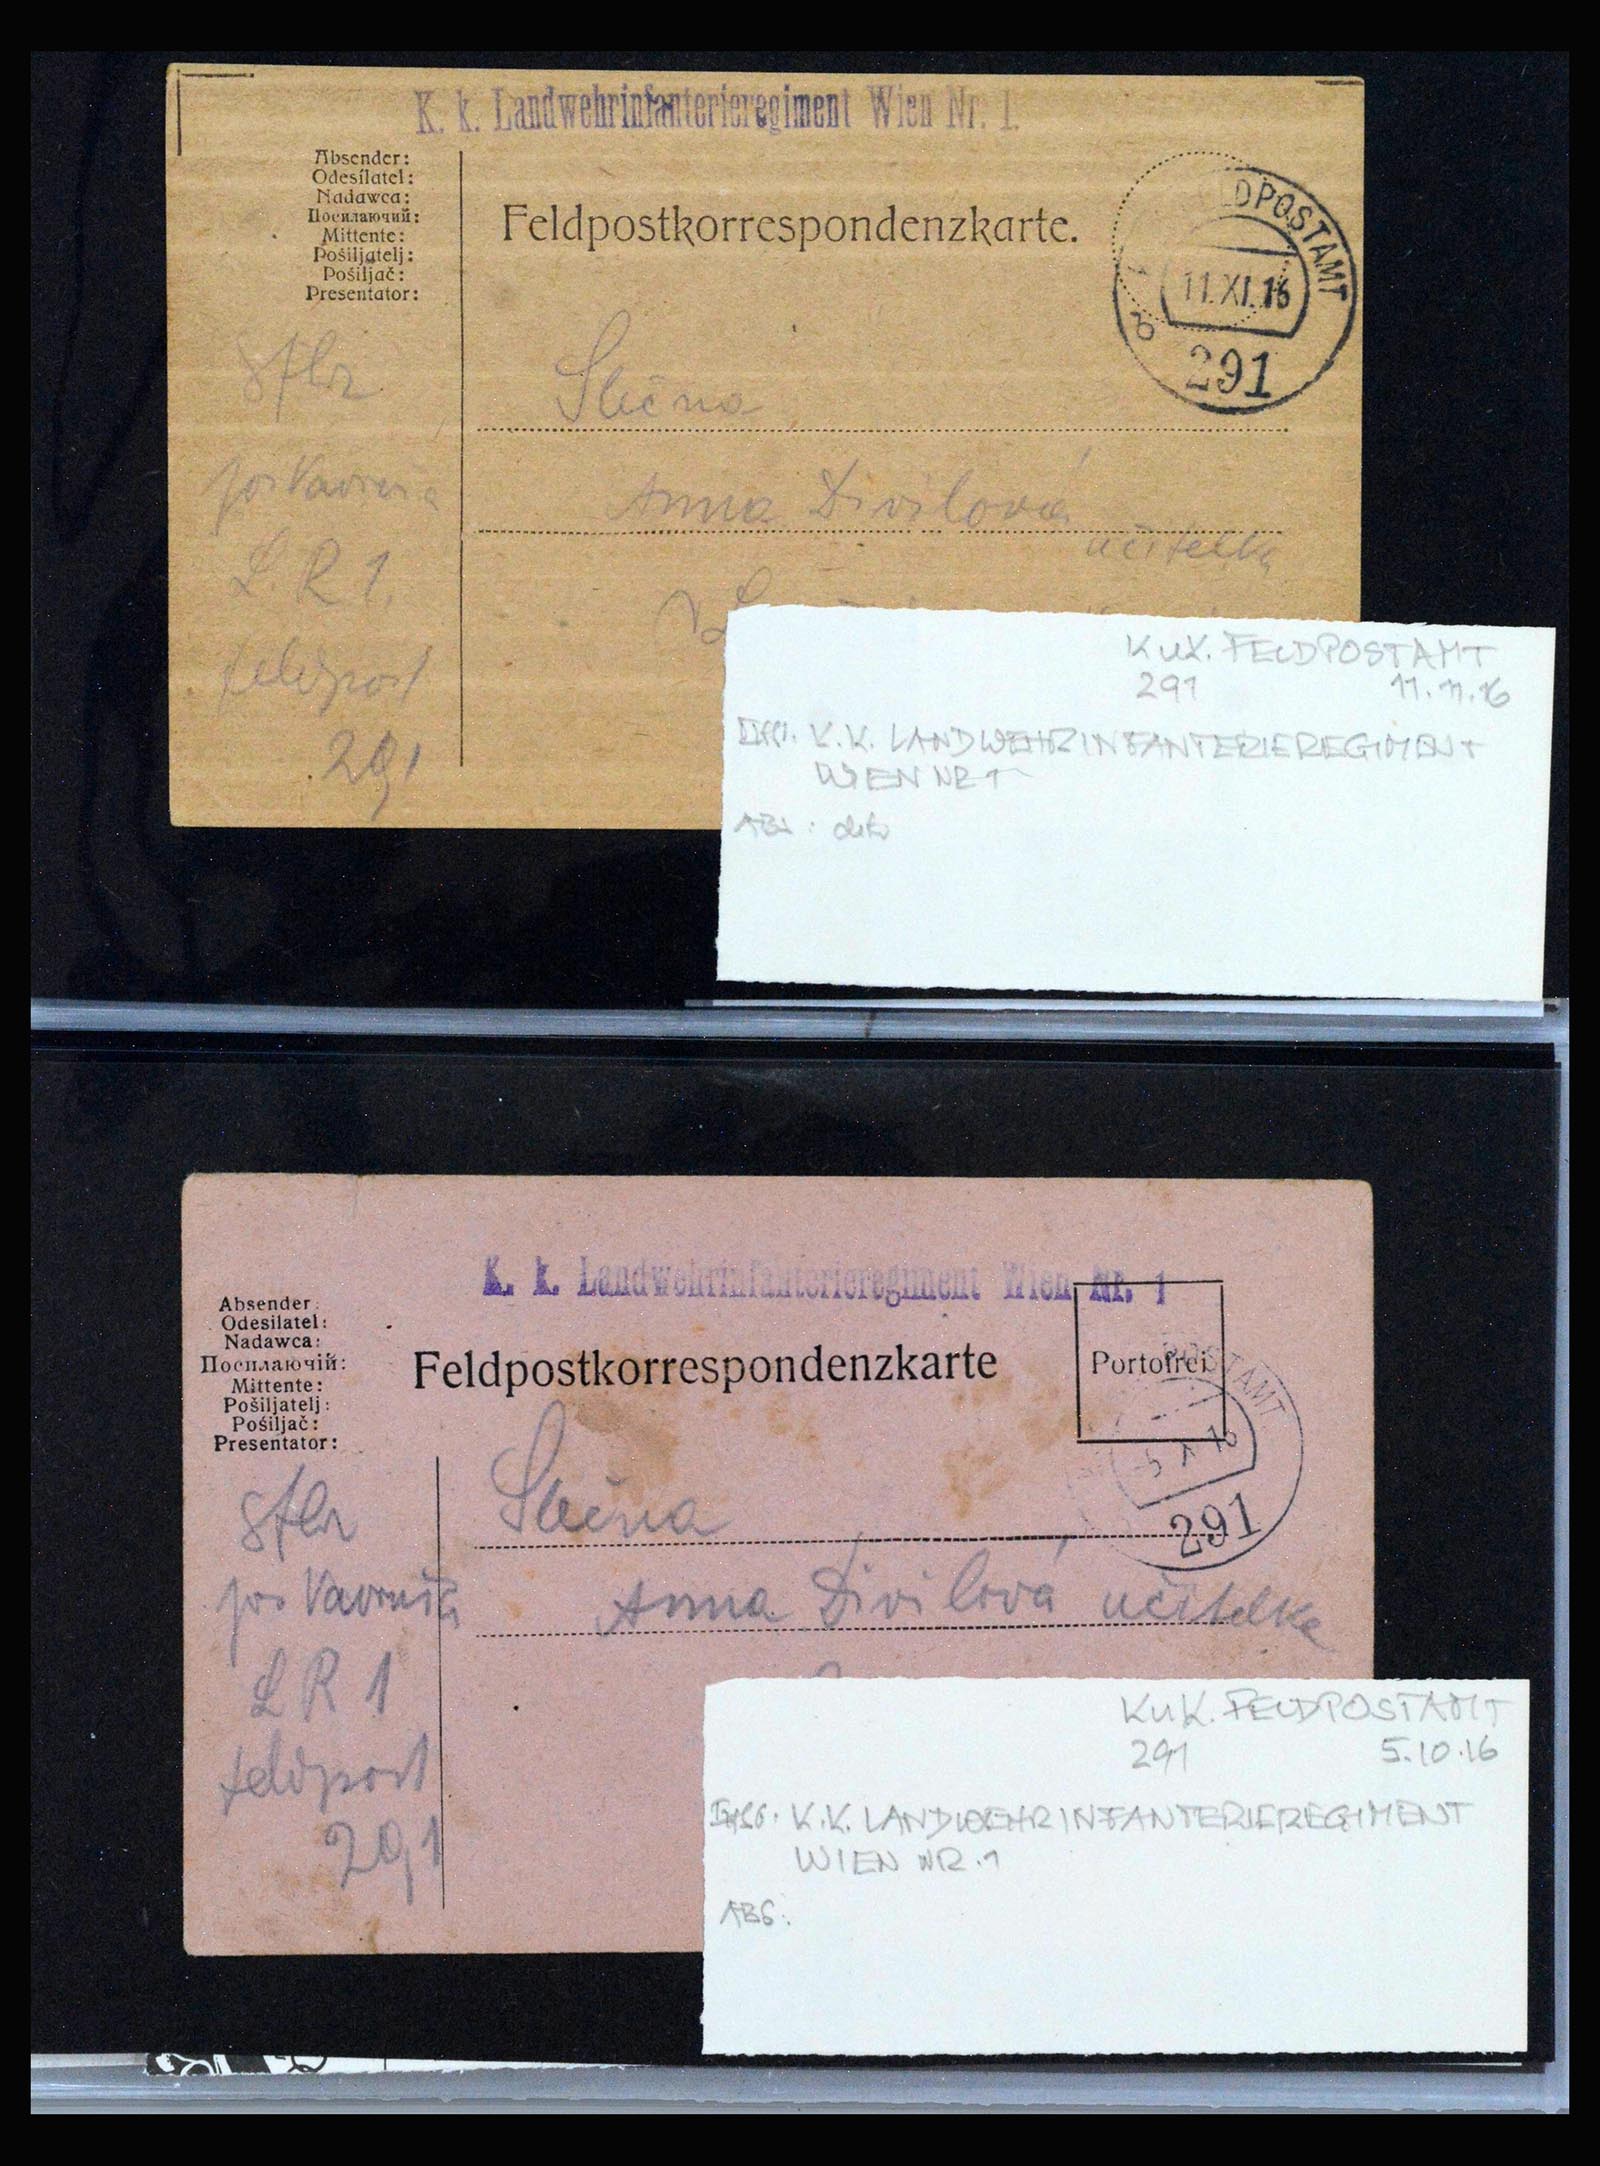 K. k. Landwehrinfanterieregiment Wien Nr. 1.
Absender:
Odesílatel:
Nadawca:
Посилаючий:
Mittente:
Pošiljatelj:
Pošiljač:
Presentator:
Feldpostkorrespondenzkarte.
LDPOSTAMT
11.XI.16
291
Slečna
Anna Divilová
učitelka
L.R 1.
feldpost
291
K.u.K. FELDPOSTAMT
291 11.11.16
K.K. LANDWEHRINFANTERIEREGIMENT
WIEN NR 1
ABS:
K. k. Landwehrinfanterieregiment Wien Nr. 1
Absender:
Odesilatel:
Nadawca:
Посилаючій:
Mittente:
Pošiljatelj:
Pośiljač:
Presentator:
Feldpostkorrespondenzkarte
Portofrei
POSTAMT
291
Slečna
Anna Divilová učitelka
LR 1
feldpost
291
K.u.K. FELDPOSTAMT
291 5.10.16
K.K. LANDWEHRINFANTERIEREGIMENT
WIEN NR.1
ABS: